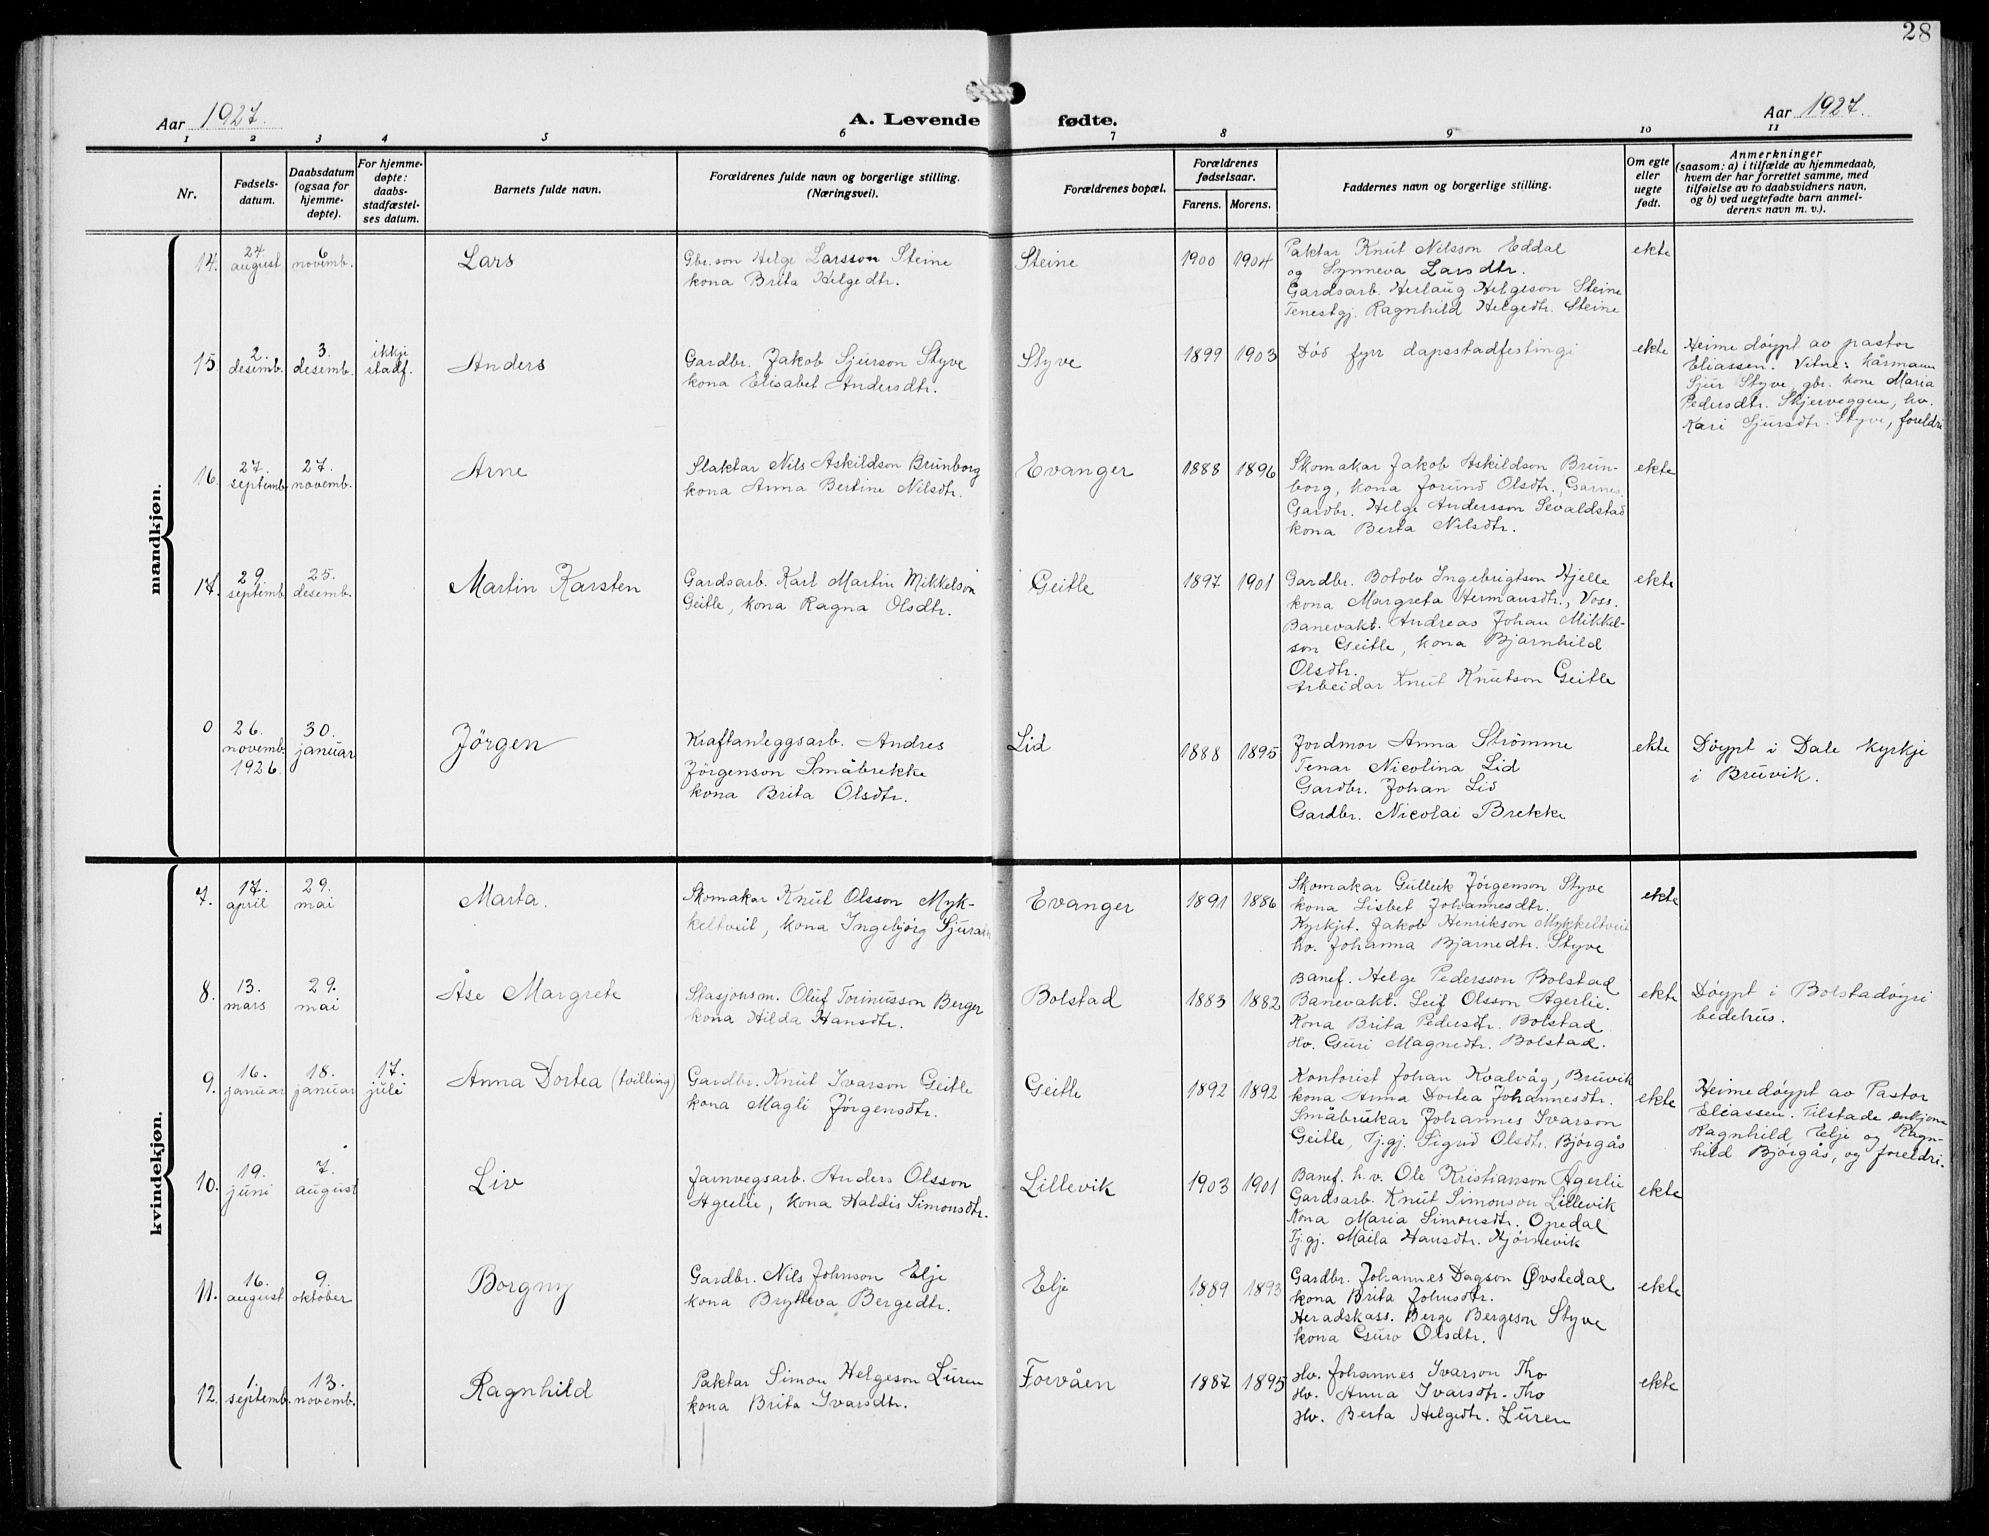 28
Aar 1927.
A. Levende fødte.
Aar 1927.
1 2 3 4 5 6 7 8 9 10 11
Nr.
Fødsels-
datum.
Daabsdatum
(ogsaa for
hjemme-
døpte).
For hjemme-
døpte:
daabs-
stadfæstel-
ses datum.
Barnets fulde navn.
Forældrenes fulde navn og borgerlige stilling.
(Næringsvei).
Forældrenes bopæl.
Forældrenes
fødselsaar.
Farens. Morens.
Faddernes navn og borgerlige stilling.
Om egte
eller
uegte
født.
Anmerkninger
(saasom: a) i tilfælde av hjemmedaab,
hvem der har forrettet samme, med
tilføielse av to daabsvidners navn,
og b) ved uegtefødte barn anmel-
derens navn m. v.).
mandkjøn.
14.
24.
august
6
novemb.
Lars
Gbr.son Helge Larsson Steine
kona Brita Helgedtr.
Steine
1900 1904
Paktar Knut Nilsson Eddal
og Synneva Larsdtr.
Gardsarb. Herlaug Helgeson Steine
Tenestgj. Ragnhild Helgedtr. Steine
ekte
15
2.
desemb.
3.
desemb.
ikkje
stadf.
Anders
Gardbr. Jakob Sjurson Styve
kona Elisabet Andersdtr.
Styve
1899 1903
Død fyrr dapsstadfestingi
ekte
Heime døypt av pastor
Eliassen. Vitne: kårmann
Sjur Styve, gbr. kone Maria
Pedersdtr. Skjerveggen, hv.
Kari Sjursdtr. Styve, foreldri
16.
27.
septemb.
27.
novemb.
Arne
Slaktar Nils Askildson Brunborg
kona Anna Bertine Nilsdtr.
Evanger
1888 1896
Skomakar Jakob Askildson Brun-
borg, kona Jorund Olsdtr., Garnes.
Gardbr. Helge Andersson Sevaldstad
kona Berta Nilsdtr.
ekte
17.
29.
septemb.
25.
desemb.
Martin Karsten
Gardsarb. Karl Martin Mikkelson
Geitle, kona Ragna Olsdtr.
Geitle
1897 1901
Gardbr. Botolv Ingebrigtson Hjelle
kona Margreta Hermansdtr., Voss.
Banevakt. Andreas Johan Mikkel-
son Geitle, kona Bjarnhild
Olsdtr.
Arbeidar Knut Knutson Geitle
ekte
0
26.
novemb.
1926.
30.
januar
Jörgen
Kraftanleggsarb. Andres
Jörgenson Småbrekke
kona Brita Olsdtr.
Lid
1888 1895
Jordmor Anna Strömme
Tenar Nicolina Lid
Gardbr. Johan Lid
Gardbr. Nicolai Brekke
ekte
Døypt i Dale kyrkje
i Bruvik.
kvindekjøn.
7.
17.
april
29.
mai
Marta.
Skomakar Knut Olsson Myk-
keltveit, kona Ingebjörg
Evanger
1891 1886
Skomakar Gulleik Jörgenson Styve
kona Lisbet Johannesdtr.
Kyrkjet. Jakob Henrikson Mykkeltveit
hv. Johanna Bjarnedtr. Styve
ekte
8.
13.
mars
29.
mai
Åse Margrete
Stasjonsm. Oluf Torinusson Berger
kona Hilda Hansdtr.
Bolstad
1883 1882
Banef. Helge Pedersson Bolstad
Banevakt. Leif Olsson Agerlie.
Kona Brita Pedersdtr. Bolstad
Hv. Guri Magnedtr. Bolstad.
ekte
Døypt i Bolstadøyri
bedehus.
9.
16.
januar
18.
januar
17.
juli
Anna Dortea (tvilling)
Gardbr. Knut Ivarson Geitle
kona Magli Jörgensdtr.
Geitle
1892 1892
Kontorist Johan Kvalvåg, Bruvik
kona Anna Dortea Johannesdtr.
Småbrukar Johannes Ivarson
Geitle, Tj.gj. Sigrid Olsdtr. Bjørgås
ekte
Heimedøypt av Pastor
Eliassen. Tilstade enkjone
Ragnhild Elje og Ragn-
hild Bjørgås, og foreldri.
10.
19.
juni
7.
august
Liv
Jarnvegsarb. Anders Olsson
Agerlie, kona Haldis Simonsdtr.
Lillevik
1903 1901
Banef. h.v. Ole Kristianson Agerlie
Gardsarb. Knut Simonson Lillevik
Kona Maria Simonsdtr. Opedal
Tj.gj. Maila Hansdtr. Hjørnevik
ekte
11.
16.
august
9.
oktober
Borgny
Gardbr. Nils Johnson Elje
kona Brytteva Bergedtr.
Elje
1889 1893
Gardbr. Johannes Dagson Øvstedal
kona Brita Johnsdtr.
Heradskass. Berge Bergeson Styve
kona Guro Olsdtr.
ekte
12.
1.
septemb.
13.
novemb.
Ragnhild
Paktar Simon Helgeson Luren
kona Brita Ivarsdtr.
Forvåen
1887 1895
Hv. Johannes Ivarson Tho
Hv. Anna Ivarsdtr. Tho
Hv. Berta Helgedtr. Luren
ekte